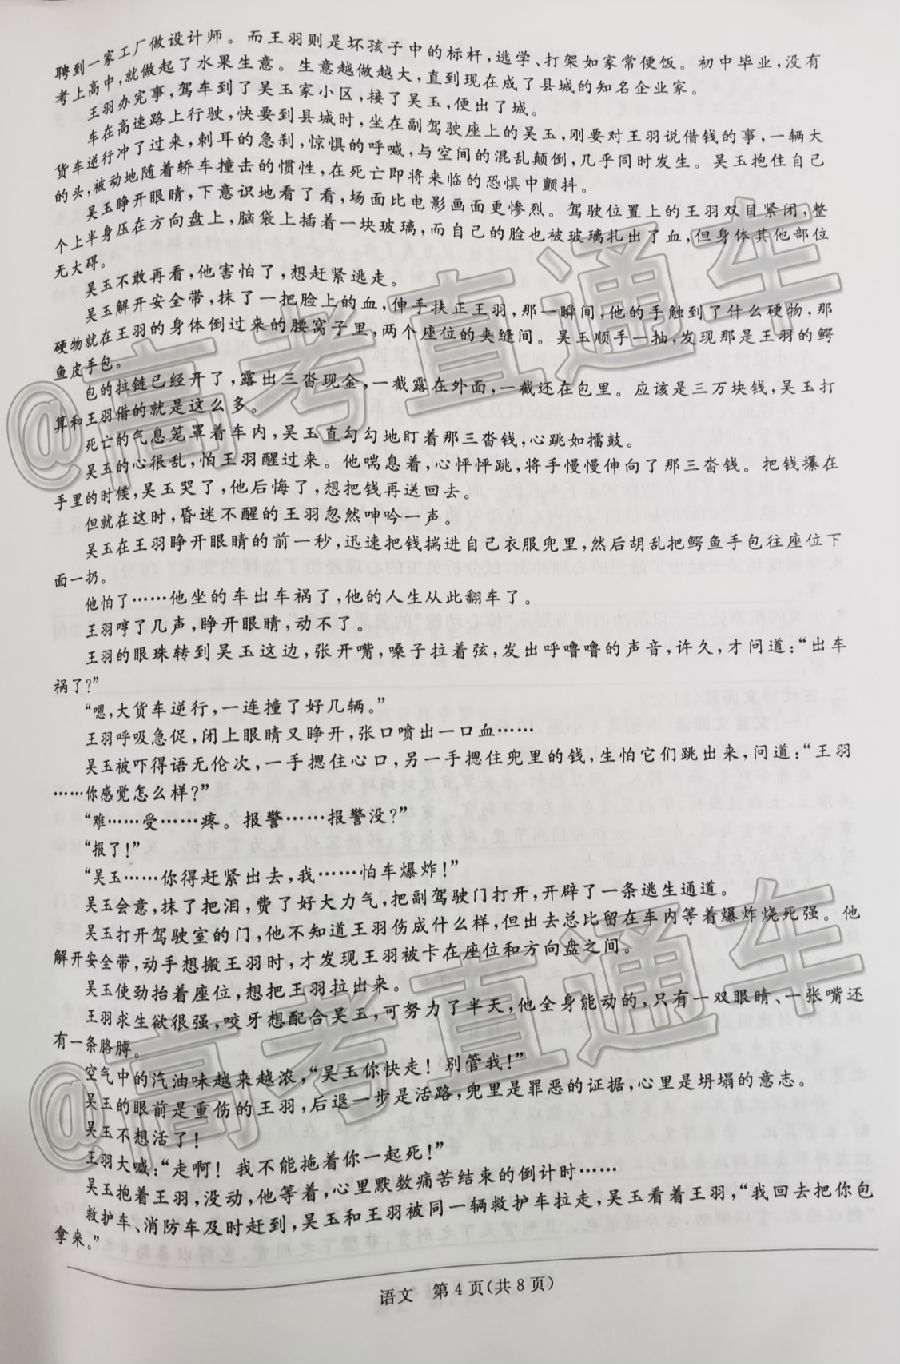 聘到一家工厂做设计师。而王羽则是坏孩子中的标杆，逃学、打架如家常便饭。初中毕业，没有
考上高中，就做起了水果生意。生意越做越大，直到现在成了县城的知名企业家。
王羽办完事，驾车到了吴玉家小区，接了吴玉，便出了城。
车在高速路上行驶，快要到县城时，坐在副驾驶座上的吴玉，刚要对王羽说借钱的事，一辆大
货车逆行冲了过来，刺耳的急刹，惊惧的呼喊，与空间的混乱颠倒，几乎同时发生。吴玉抱住自己
的头，被动地随着轿车撞击的惯性，在死亡即将来临的恐惧中颤抖。
吴玉睁开眼睛，下意识地看了看，场面比电影画面更惨烈。驾驶位置上的王羽双目紧闭，整
个上半身压在方向盘上，脑袋上插着一块玻璃，而自己的脸也被玻璃扎出了血，但身体其他部位
无大碍。
吴玉不敢再看，他害怕了，想赶紧逃走。
吴玉解开安全带，抹了一把脸上的血，伸手扶正王羽，那一瞬间，他的手触到了什么硬物，那
硬物就在王羽的身体倒过来的腰窝子里，两个座位的夹缝间。吴玉顺手一抽，发现那是王羽的鳄
鱼皮手包。
包的拉链已经开了，露出三沓现金，一截露在外面，一截还在包里。应该是三万块钱，吴玉打
算和王羽借的就是这么多。
死亡的气息笼罩着车内，吴玉直勾勾地盯着那三沓钱，心跳如擂鼓。
吴玉的心很乱，怕王羽醒过来。他喘息着，心怦怦跳，将手慢慢伸向了那三沓钱。把钱攥在
手里的时候，吴玉哭了，他后悔了，想把钱再送回去。
但就在这时，昏迷不醒的王羽忽然呻吟一声。
吴玉在王羽睁开眼睛的前一秒，迅速把钱揣进自己衣服兜里，然后胡乱把鳄鱼手包往座位下
面一扔。
他怕了……他坐的车出车祸了，他的人生从此翻车了。
王羽哼了几声，睁开眼睛，动不了。
王羽的眼珠转到吴玉这边，张开嘴，嗓子拉着弦，发出呼噜噜的声音，许久，才问道：“出车
祸了？”
“嗯，大货车逆行，一连撞了好几辆。”
王羽呼吸急促，闭上眼睛又睁开，张口喷出一口血……
吴玉被吓得语无伦次，一手摁住心口，另一手摁住兜里的钱，生怕它们跳出来，问道：“王羽
……你感觉怎么样？”
“难……受……疼。报警……报警没？”
“报了！”
“吴玉……你得赶紧出去，我……怕车爆炸！”
吴玉会意，抹了把泪，费了好大力气，把副驾驶门打开，开辟了一条逃生通道。
吴玉打开驾驶室的门，他不知道王羽伤成什么样，但出去总比留在车内等着爆炸烧死强。他
解开安全带，动手想搬王羽时，才发现王羽被卡在座位和方向盘之间。
吴玉使劲抬着座位，想把王羽拉出来。
王羽求生欲很强，咬牙想配合吴玉，可努力了半天，他全身能动的，只有一双眼睛、一张嘴还
有一条胳膊。
空气中的汽油味越来越浓，“吴玉你快走！别管我！”
吴玉的眼前是重伤的王羽，后退一步是活路，兜里是罪恶的证据，心里是坍塌的意志。
吴玉不想活了！
王羽大喊：“走啊！我不能拖着你一起死！”
吴玉抱着王羽，没动，他等着，心里默数痛苦结束的倒计时……
救护车、消防车及时赶到，吴玉和王羽被同一辆救护车拉走，吴玉看着王羽，“我回去把你包
拿来。”
语文 第4页（共8页）
@高考直通车
@高考直通车